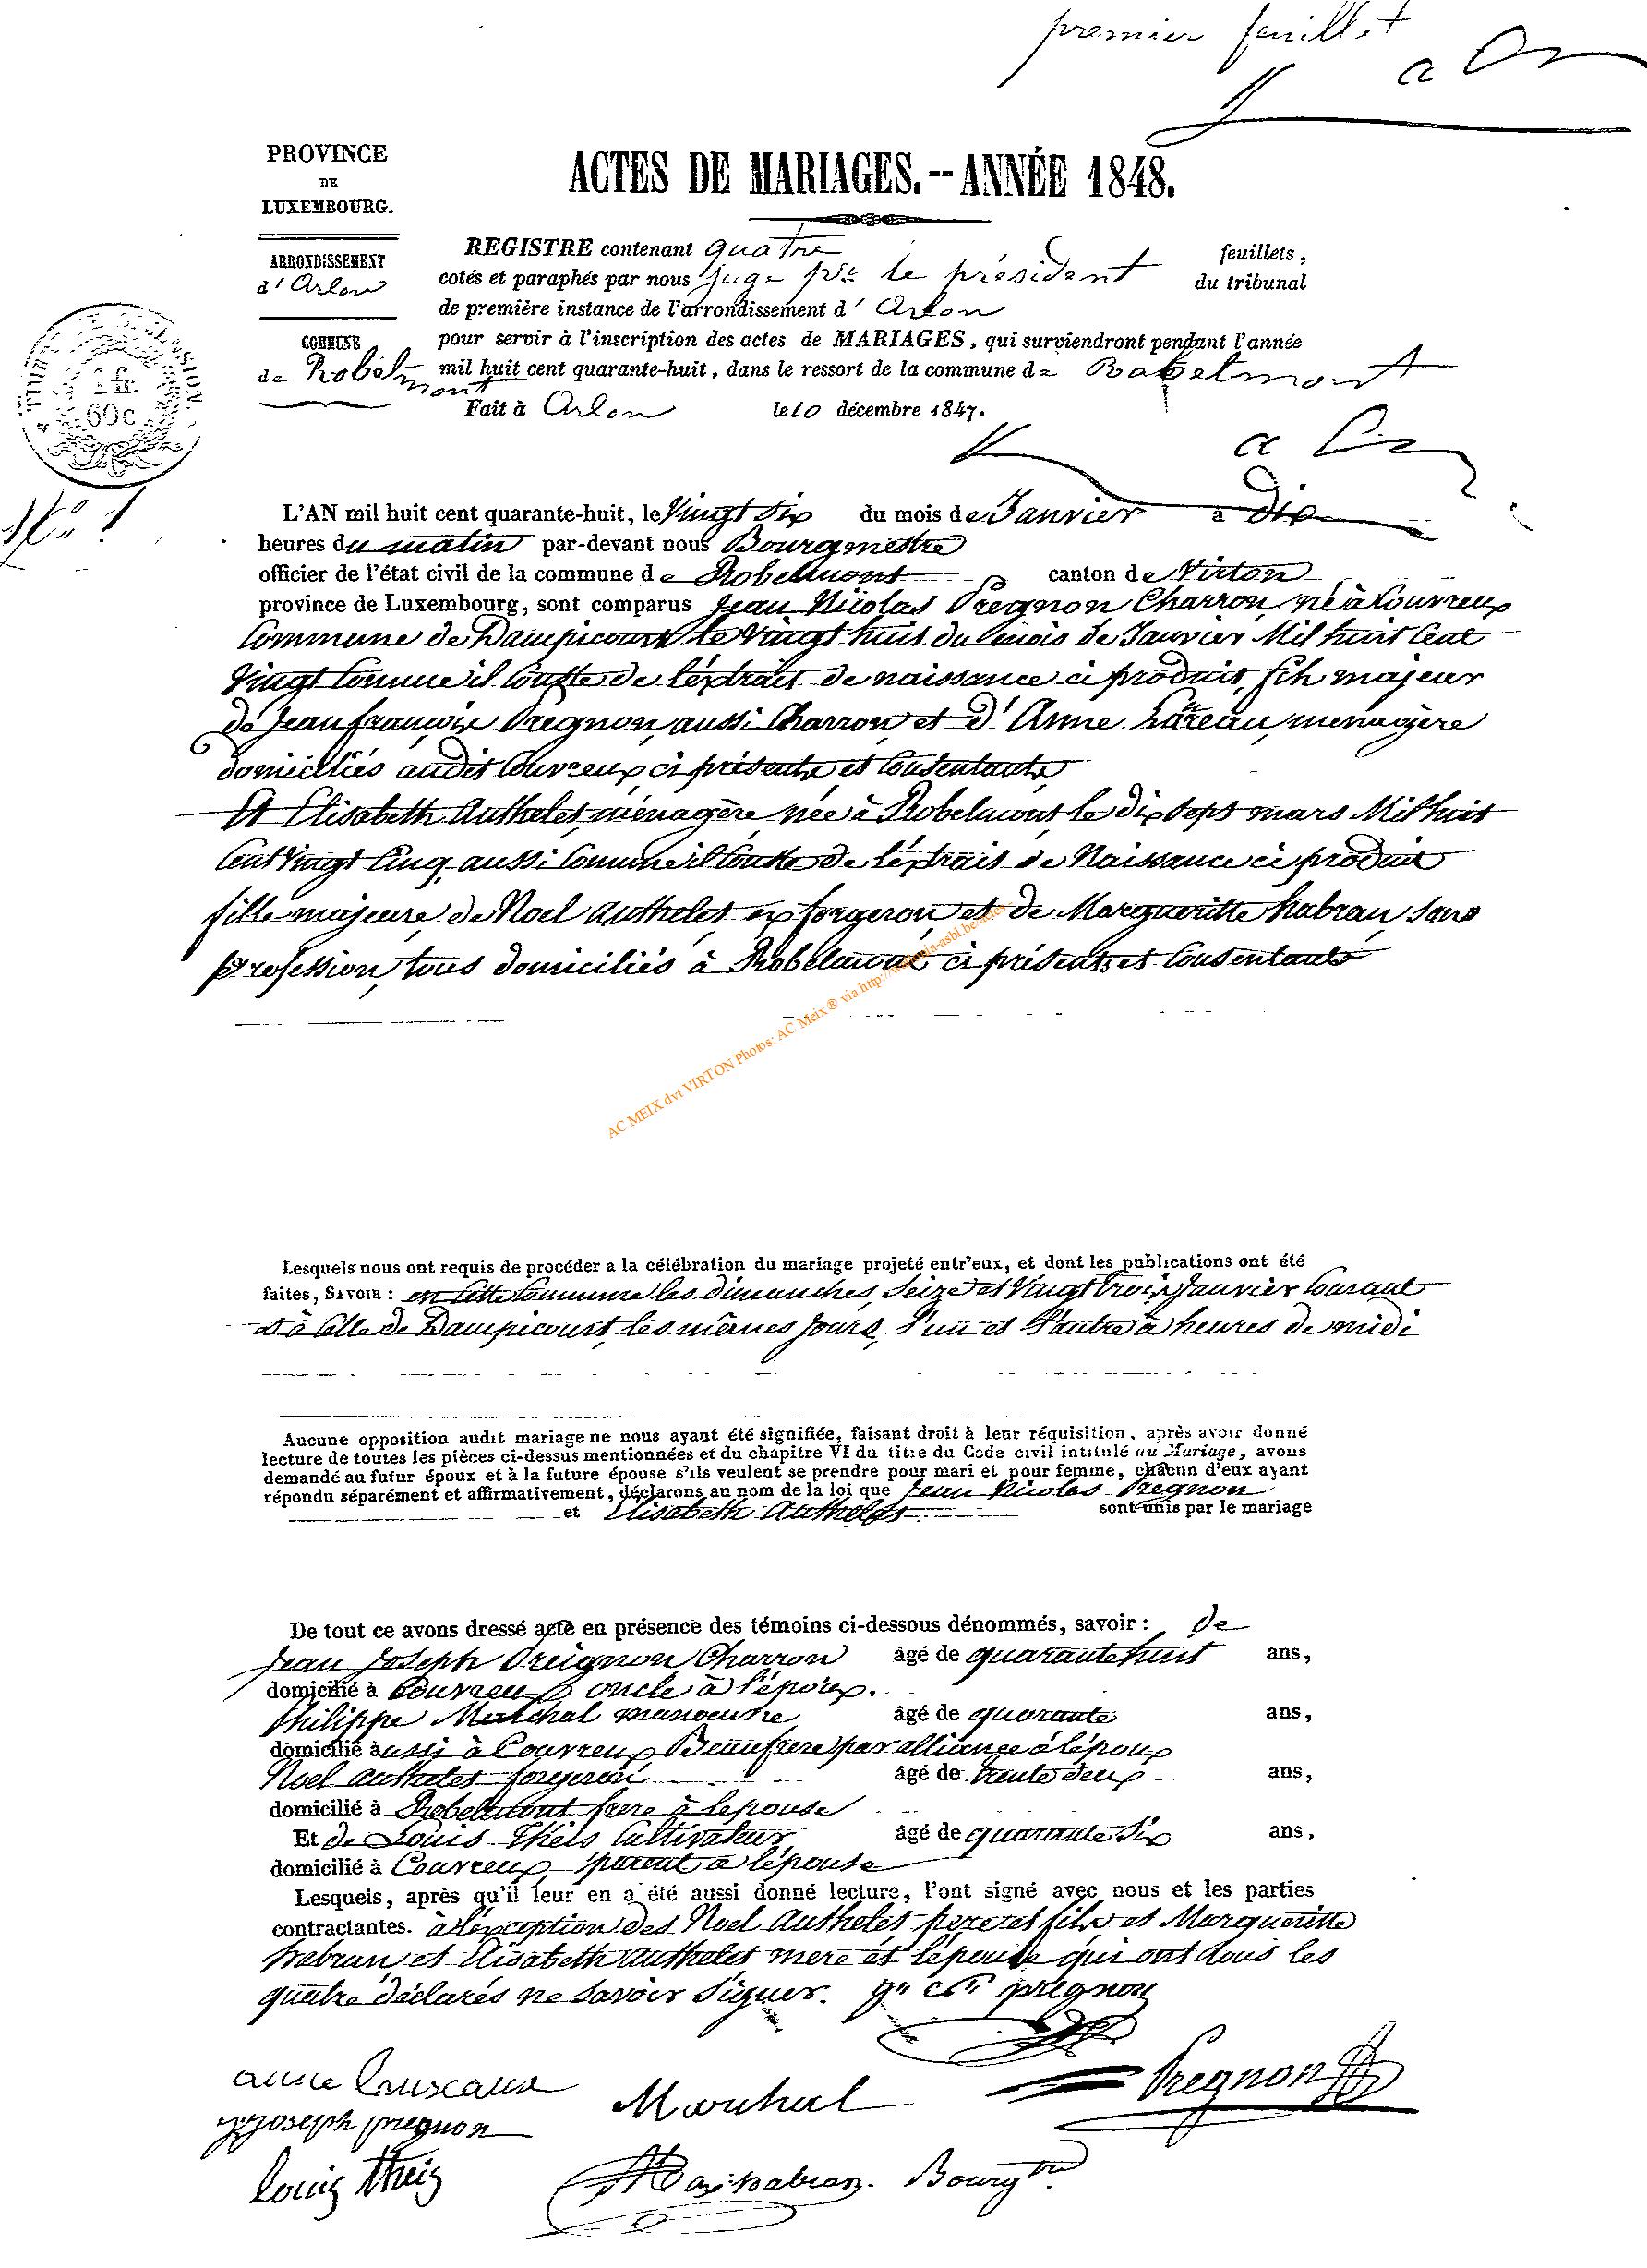 premier feuillet
PROVINCE
DE
LUXEMBOURG.
ARRONDISSEMENT
d'Arlon
COMMUNE
de Robelmont
ACTES DE MARIAGES.--ANNÉE 1848.
REGISTRE contenant quatre feuillets,
cotés et paraphés par nous juge le président du tribunal
de première instance de l'arrondissement d' Arlon
pour servir à l'inscription des actes de MARIAGES, qui surviendront pendant l'année
mil huit cent quarante-huit, dans le ressort de la commune de Robelmont
Fait à Arlon le 10 décembre 1847.
1 fr.
60c
N° 1
L'AN mil huit cent quarante-huit, le Vingt Six du mois de Janvier à dix
heures du matin par-devant nous Bourgmestre
officier de l'état civil de la commune de Robelmont canton de Virton
province de Luxembourg, sont comparus Jean Nicolas Pregnon Charron, né à Couvreux
Commune de Dampicourt le Vingt huit du mois de Janvier Mil huit Cent
Vingt Comme il Conste de l'éxtrait de naissance ci produit, fils majeur
de Jean françois Pregnon, aussi Charron, et d'Anne menagère
domiciliés audit Couvreux ci présents et Consentants
Et Elisabeth Authelet, ménagère née à Robelmont, le dix sept mars Mil huit
Cent Vingt Cinq, aussi Comme il Conste de l'éxtrait de Naissance ci produit
fille majeure, de Noel Authelet, ex forgeron, et de Margueritte habran, sans
profession, tous domiciliés à Robelmont ci présents et Consentants
AC MEIX dvt VIRTON Photos: AC Meix ® via
Lesquels nous ont requis de procéder a la célébration du mariage projeté entr'eux, et dont les publications ont été
faites, SAVOIR : en Cette Commune les dimanches, Seize et Vingt trois Janvier Courant
et à Celle de Dampicourt, les mêmes Jours, l'un et l'autre à heures de midi
Aucune opposition audit mariage ne nous ayant été signifiée, faisant droit à leur réquisition, après avoir donné
lecture de toutes les pièces ci-dessus mentionnées et du chapitre VI du titre du Code civil intitulé du Mariage, avons
demandé au futur époux et à la future épouse s'ils veulent se prendre pour mari et pour femme, chacun d'eux ayant
répondu séparément et affirmativement, déclarons au nom de la loi que Jean Nicolas Pregnon
et Elisabeth Authelet sont unis par le mariage
De tout ce avons dressé acte en présence des témoins ci-dessous dénommés, savoir : de
Jean Joseph Preignon Charron âgé de quarante huit ans,
domicilié à Couvreux oncle à l'époux.
Philippe Maréchal manoeuvre âgé de quarante ans,
domicilié aussi à Couvreux Beaufrere par alliance à l'époux
Noel Authelet forgeron âgé de trente deux ans,
domicilié à Robelmont frere à l'epouse
Et de Louis Theis Cultivateur âgé de quarante Six ans,
domicilié à Couvreux parent à l'épouse
Lesquels, après qu'il leur en a été aussi donné lecture, l'ont signé avec nous et les parties
contractantes. à l'éxception des Noel Authelet pere et fils, et Margueritte
habran, et Elisabeth Authelet mere et l'epouse qui ont tous les
quatre déclarés ne savoir Signer. pregnon
anne Pregnon
joseph pregnon Marechal
Louis theis habran. Bourgtre